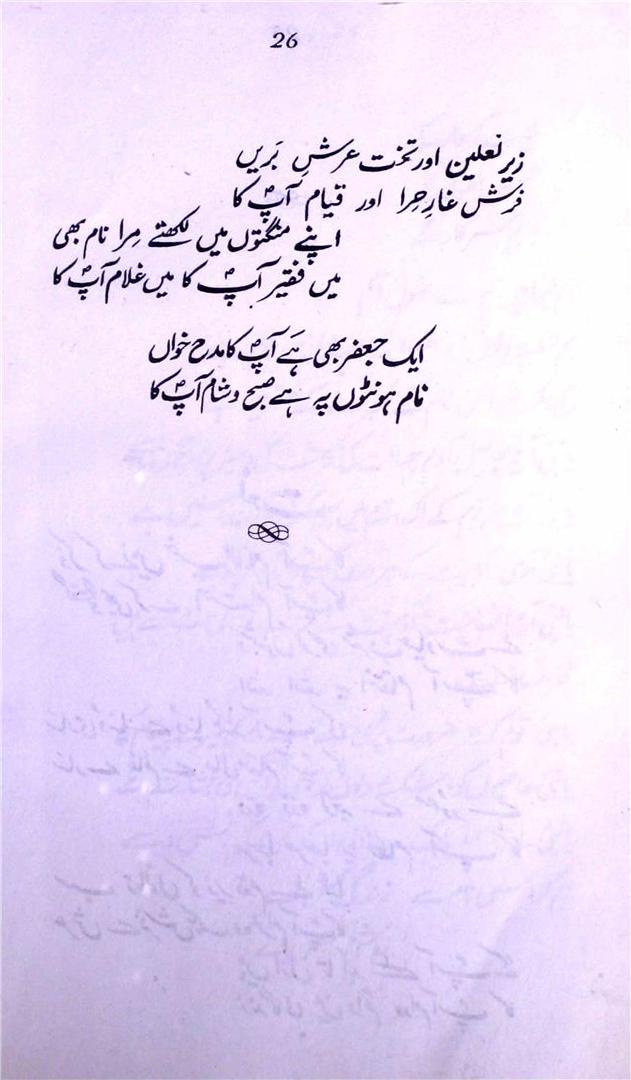 26
زیرِ نعلین اور تخت عرشِ بَریں
فرش غارِ حِرا اور قیام آپؐ کا
اپنے منگتوں میں لکھتے مِرا نام بھی
میں فقیر آپؐ کا میں غلام آپؐ کا
ایک جعفر بھی ہَے آپؐ کا مدح خواں
نام ہونٹوں پہ ہے صبح و شام آپؐ کا